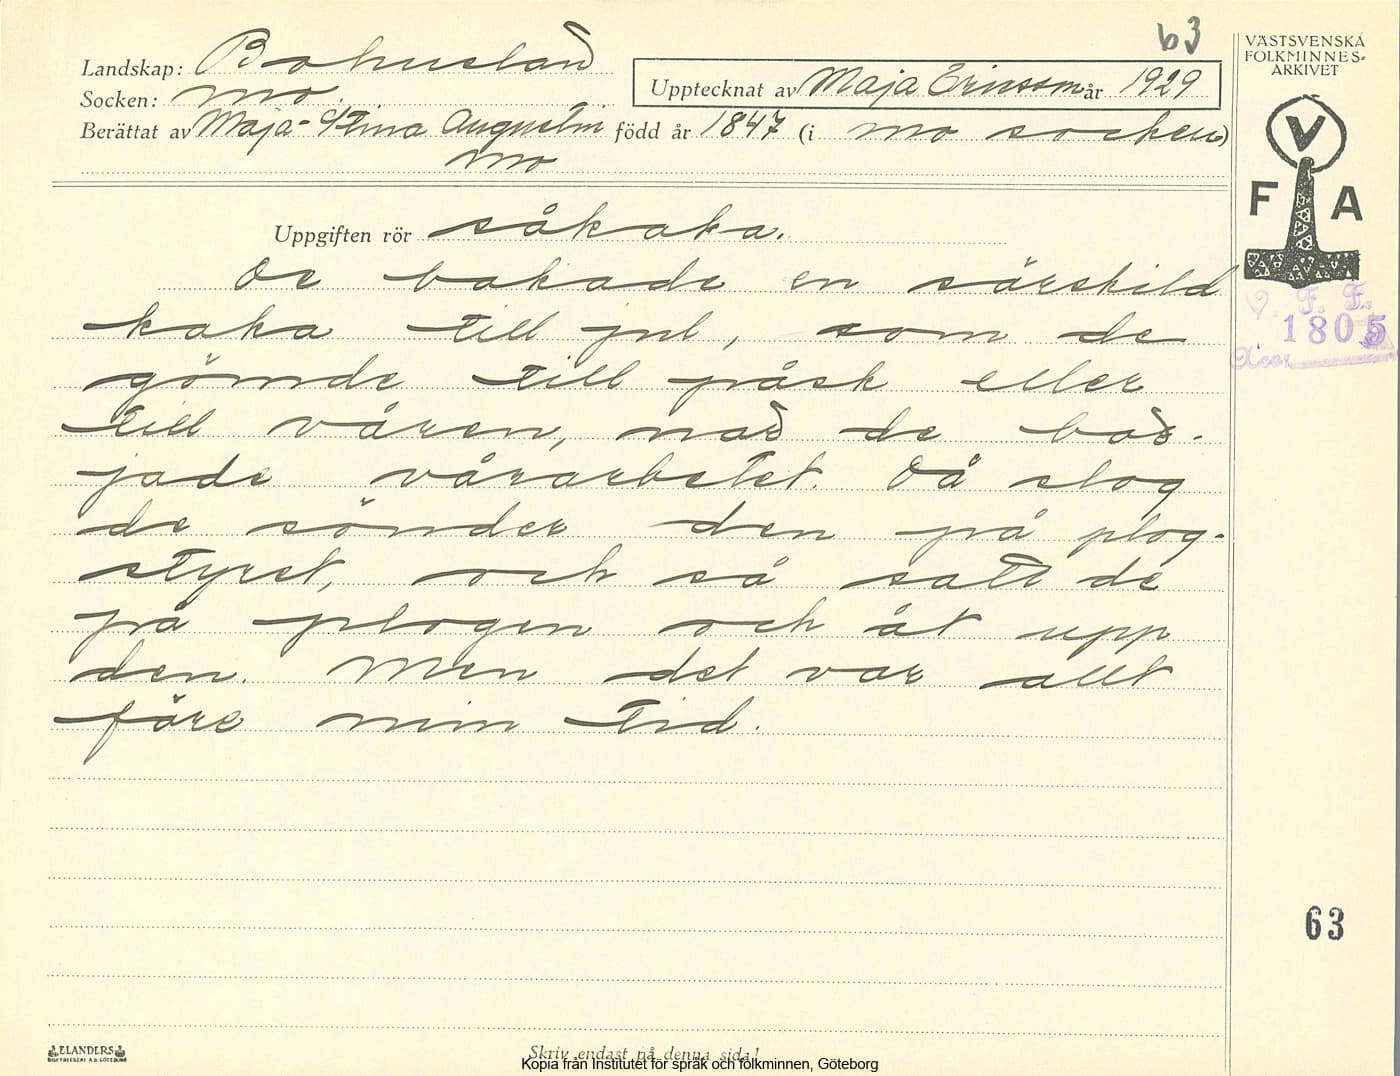 63
VÄSTSVENSKA
FOLKMINNES-
ARKIVET
Landskap: Bohuslän
Upptecknat av Maja Ericsson år 1929
Socken: Mo.
Berättat av Maja-Stina Augustin född år 1847 (i Mo socken)
Mo
V
F A
Uppgiften rör såkaka.
De bakade en särskild
kaka till jul, som de
gömde till påsk eller
till våren, när de bör-
jade vårarbetet. Då slog
de sönder den på plog-
styret, och så satt de
på plogen och åt upp
den. Men det var allt
före min tid.
V. F. F.
1805
Acc.
63
ELANDERS
BOKTRYCKERI A.B. GÖTEBORG
Skriv endast på denna sida!
Kopia från Institutet för språk och folkminnen, Göteborg